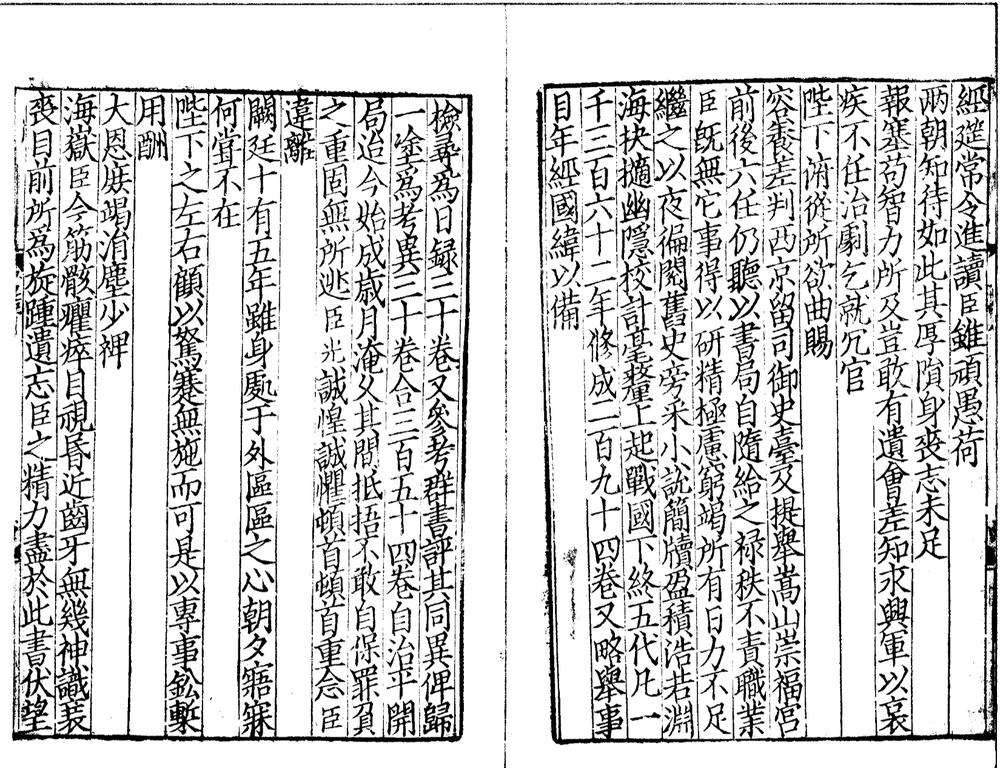 經筵常令進讀臣雖頑愚荷
兩朝知待如此其厚隕身喪志未足
報塞苟智力所及豈敢有遺會差知永興軍以衰
疾不任治劇乞就冗官
陛下俯從所欲曲賜
容養差判西京留司御史臺及提舉嵩山崇福宮
前後六任仍聽以書局自隨給之禄秩不責職業
臣既無它事得以研精極慮窮竭所有日力不足
繼之以夜徧閱舊史旁采小説簡牘盈積浩若淵
海抉擿幽隱校計毫釐上起戰國下終五代凡一
千三百六十二年修成二百九十四卷又略舉事
目年經國緯以備
檢尋爲目録三十卷又參考群書評其同異俾歸
一塗爲考異三十卷合三百五十四卷自治平開
局迨今始成歲月淹久其間抵捂不敢自保罪負
之重固無所逃臣光誠惶誠懼頓首頓首重念臣
違離
闕廷十有五年雖身處于外區區之心朝夕寤寐
何嘗不在
陛下之左右顧以駑蹇無施而可是以專事鈆槧
用酬
大恩庶竭涓塵少裨
海嶽臣今筋骸癯瘁目視昏近齒牙無幾神識衰
喪目前所爲旋踵遺忘臣之精力盡於此書伏望